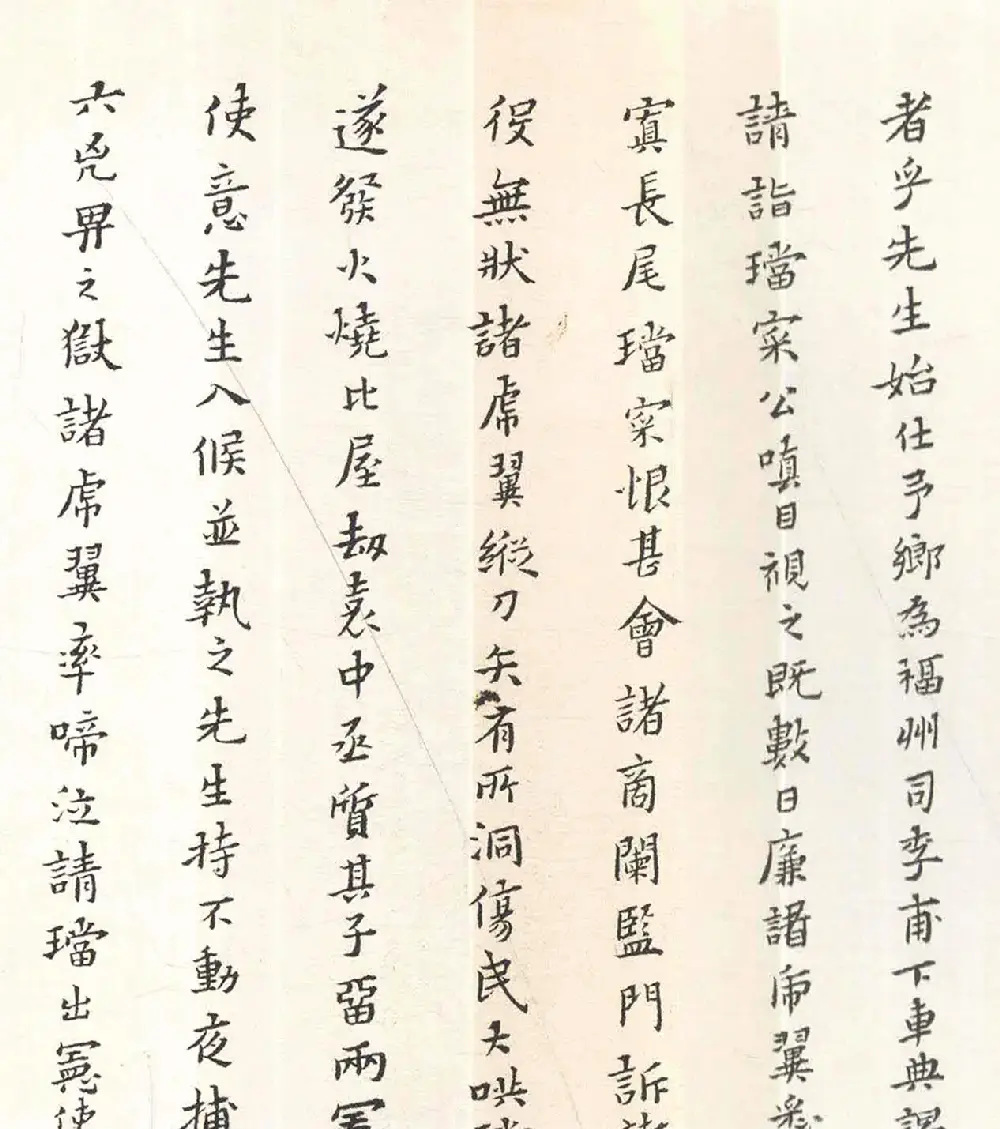 者乎先生始仕予鄉為福州司李甫下車典謁
請詣璫寀公嗔目視之既數日廉諸虎翼姦
寘長尾璫寀恨甚會諸商闌監門訴諸
役無狀諸虎翼縱刀矢有所洞傷民大哄
遂發火燒比屋劫袁中丞質其子留兩
使意先生入候並執之先生持不動夜捕
六兇畀之獄諸虎翼率啼泣請璫出冤使